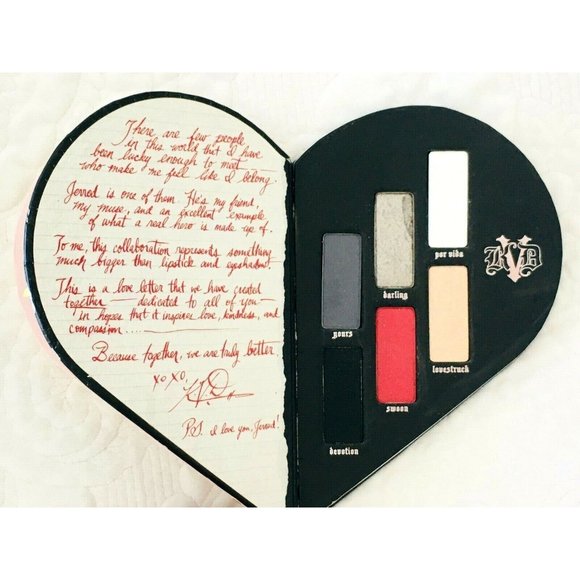 There are few people
in this world that I have
been lucky enough to meet
who make me feel like I belong.
Jerrod is one of them. He's my friend,
my muse, and an excellent example
of what a real hero is made up of.
To me, this collaboration represents something
much bigger then lipstick and eyeshadow!
This is a love letter that we have created
together — dedicated to all of you —
in hopes that it inspires love, kindness, and
compassion......
Because together, we are truly better,
xo xo,
KVD
P.S. I love you, Jerrod!
por vida
darling
KVD
yours
lovestruck
swoon
devotion